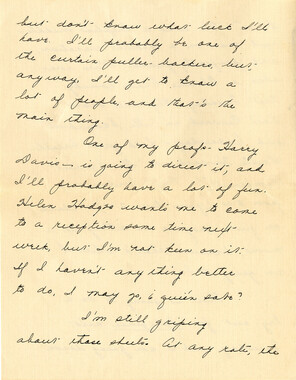 but don't know what luck I'll
have. I'll probably be one of
the curtain puller-backers, but,
anyway, I'll get to know a
lot of people, and that's the
main thing.
One of my profs - Harry
Davis - is going to direct it, and
I'll probably have a lot of fun.
Helen Hodges wants me to come
to a reception some time next
week, but I'm not keen on it.
If I haven't any thing better
to do, I may go, ¿ quién sabe?
I'm still griping
about those sheets. At any rate, the